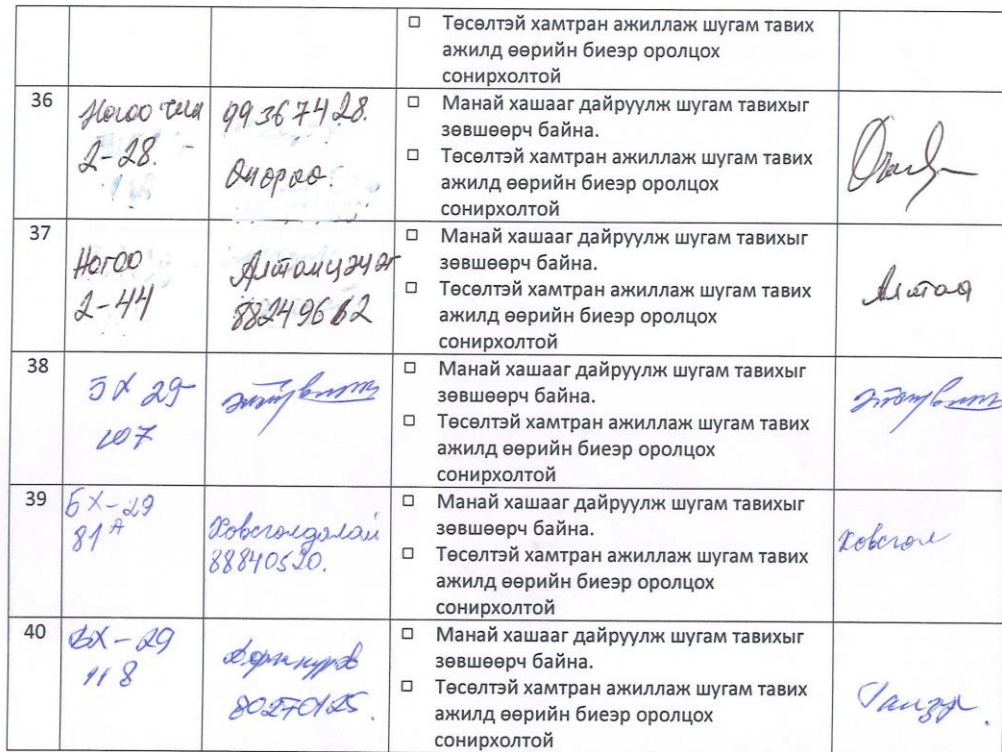 ☐ Төсөлтэй хамтран ажиллаж шугам тавих
ажилд өөрийн биеэр оролцох
сонирхолтой
36
2-28.
99367428.
☐ Манай хашааг дайруулж шугам тавихыг
зөвшөөрч байна.
☐ Төсөлтэй хамтран ажиллаж шугам тавих
ажилд өөрийн биеэр оролцох
сонирхолтой
37
Ногоо
2-44
Алтанцэцэг
88249662
☐ Манай хашааг дайруулж шугам тавихыг
зөвшөөрч байна.
☐ Төсөлтэй хамтран ажиллаж шугам тавих
ажилд өөрийн биеэр оролцох
сонирхолтой
Алтаа
38
БХ 29
107
☐ Манай хашааг дайруулж шугам тавихыг
зөвшөөрч байна.
☐ Төсөлтэй хамтран ажиллаж шугам тавих
ажилд өөрийн биеэр оролцох
сонирхолтой
39
БХ-29
81А
Ховсголдалай
88840520.
☐ Манай хашааг дайруулж шугам тавихыг
зөвшөөрч байна.
☐ Төсөлтэй хамтран ажиллаж шугам тавих
ажилд өөрийн биеэр оролцох
сонирхолтой
Ховсгол
40
БХ-29
118
80270125.
☐ Манай хашааг дайруулж шугам тавихыг
зөвшөөрч байна.
☐ Төсөлтэй хамтран ажиллаж шугам тавих
ажилд өөрийн биеэр оролцох
сонирхолтой